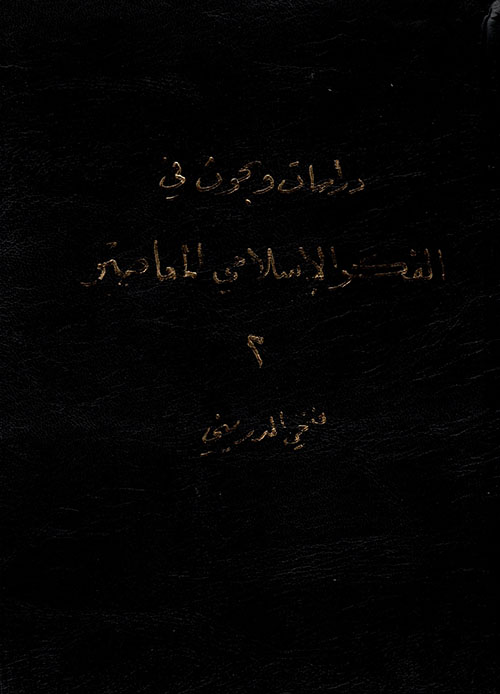 دراسات وبحوث في
الفكر الإسلامي المعاصر
٢
فتحي الدريني